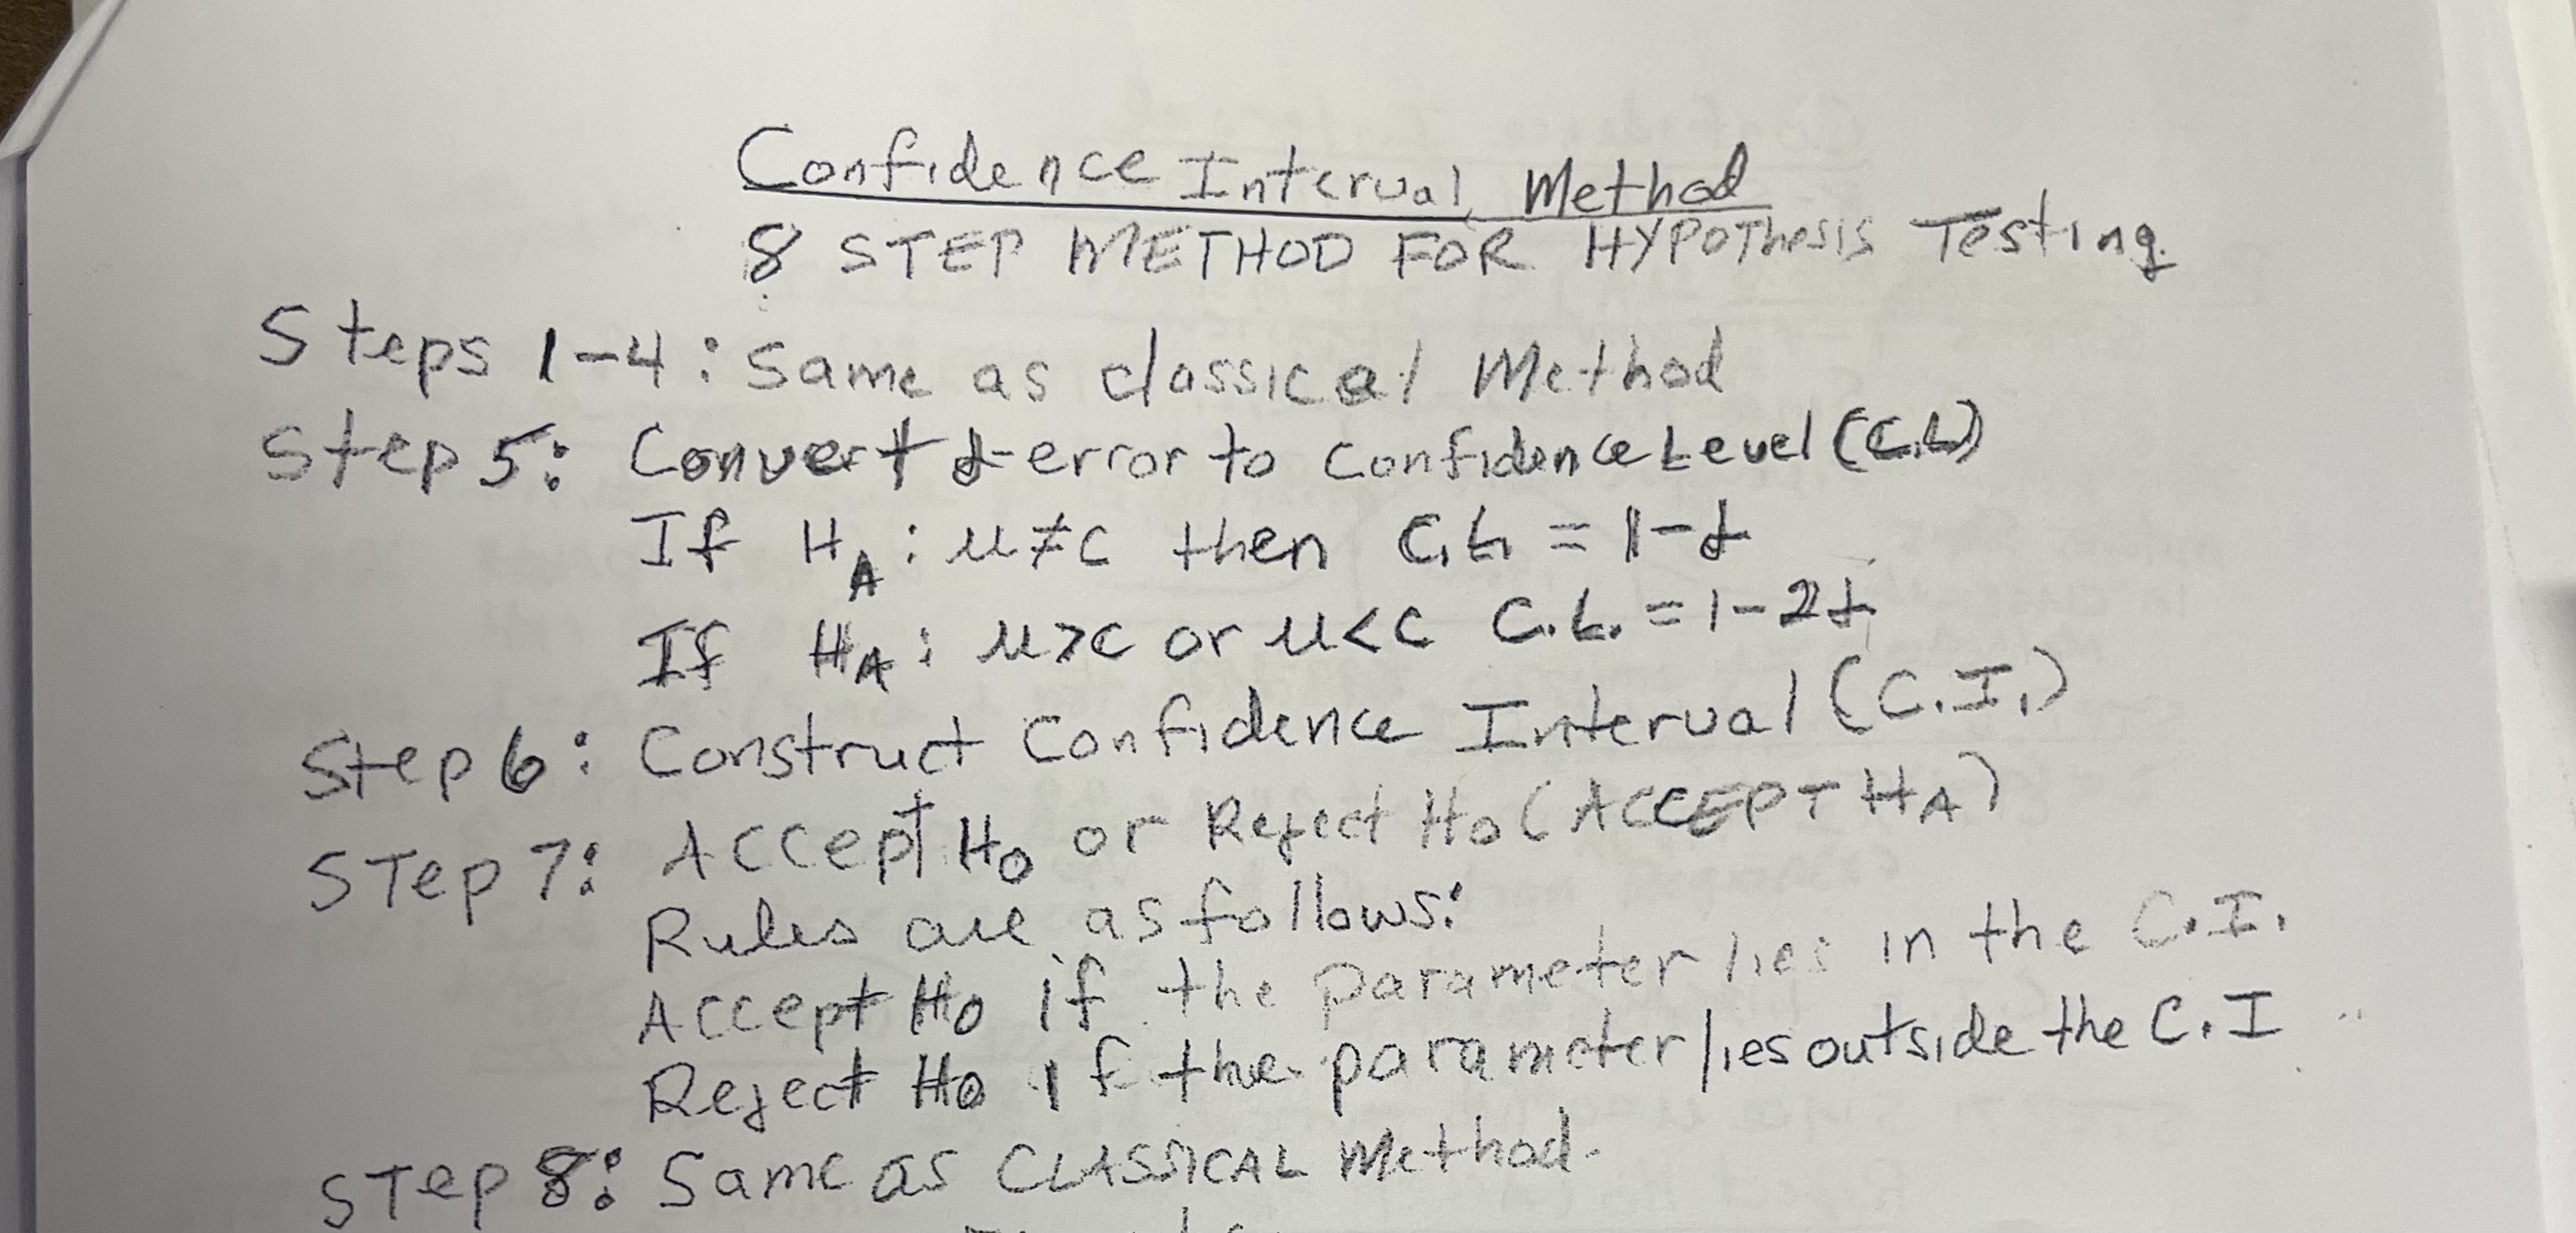 Confidence Interval Method
8 STEP METHOD FOR HYPOThesis Testing
Steps 1-4: Same as classical Method
Step 5: Convert α-error to Confidence Level (C.L)
If HA: μ≠c then C.L. = 1-α
If HA: μ>c or μ<c C.L. = 1-2α
Step 6: Construct Confidence Interval (C.I.)
STep 7: Accept H0 or Reject H0 (ACCEPT HA)
Rules are as follows:
Accept H0 if the parameter lies in the C.I.
Reject H0 if the parameter lies outside the C.I
STep 8: Same as CLASSICAL Method.